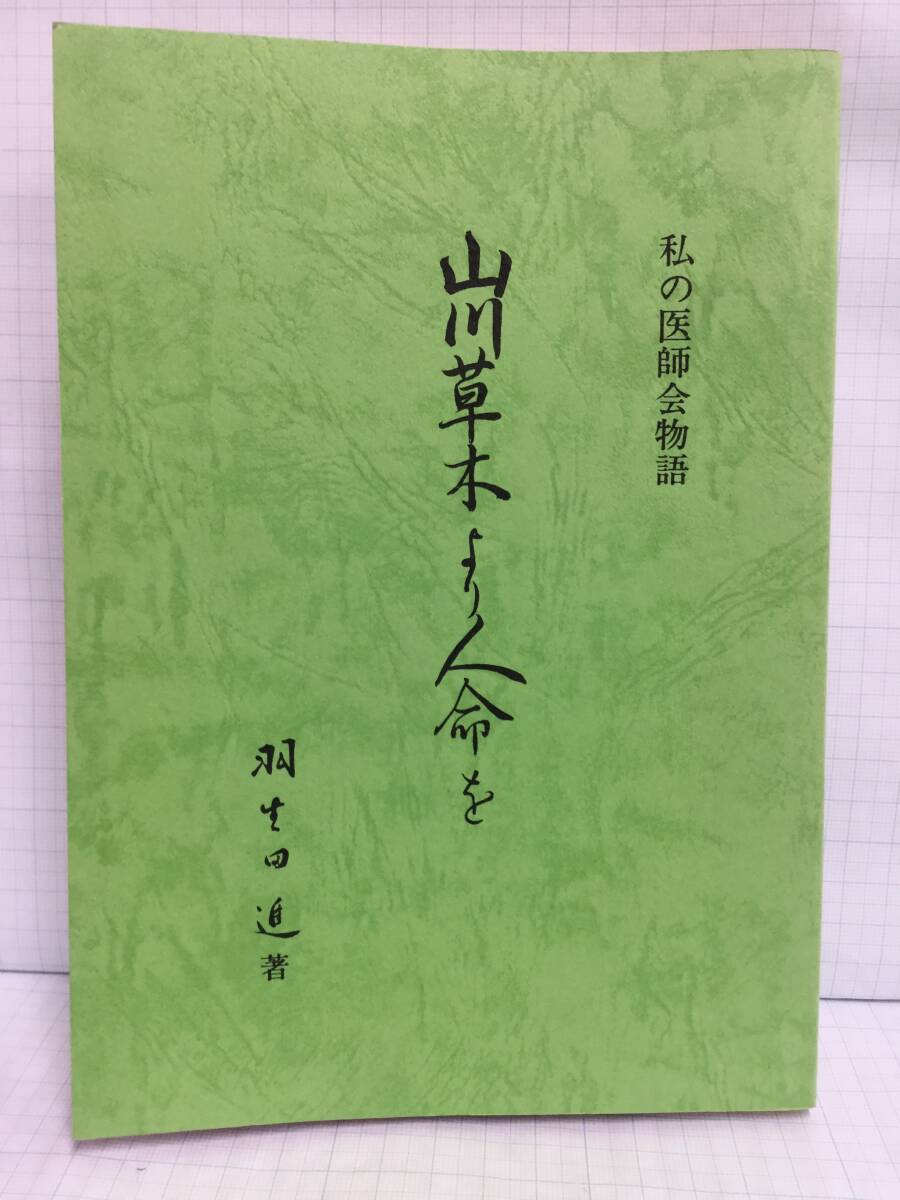 私の医師会物語
山川草木より人命を
羽生田進著